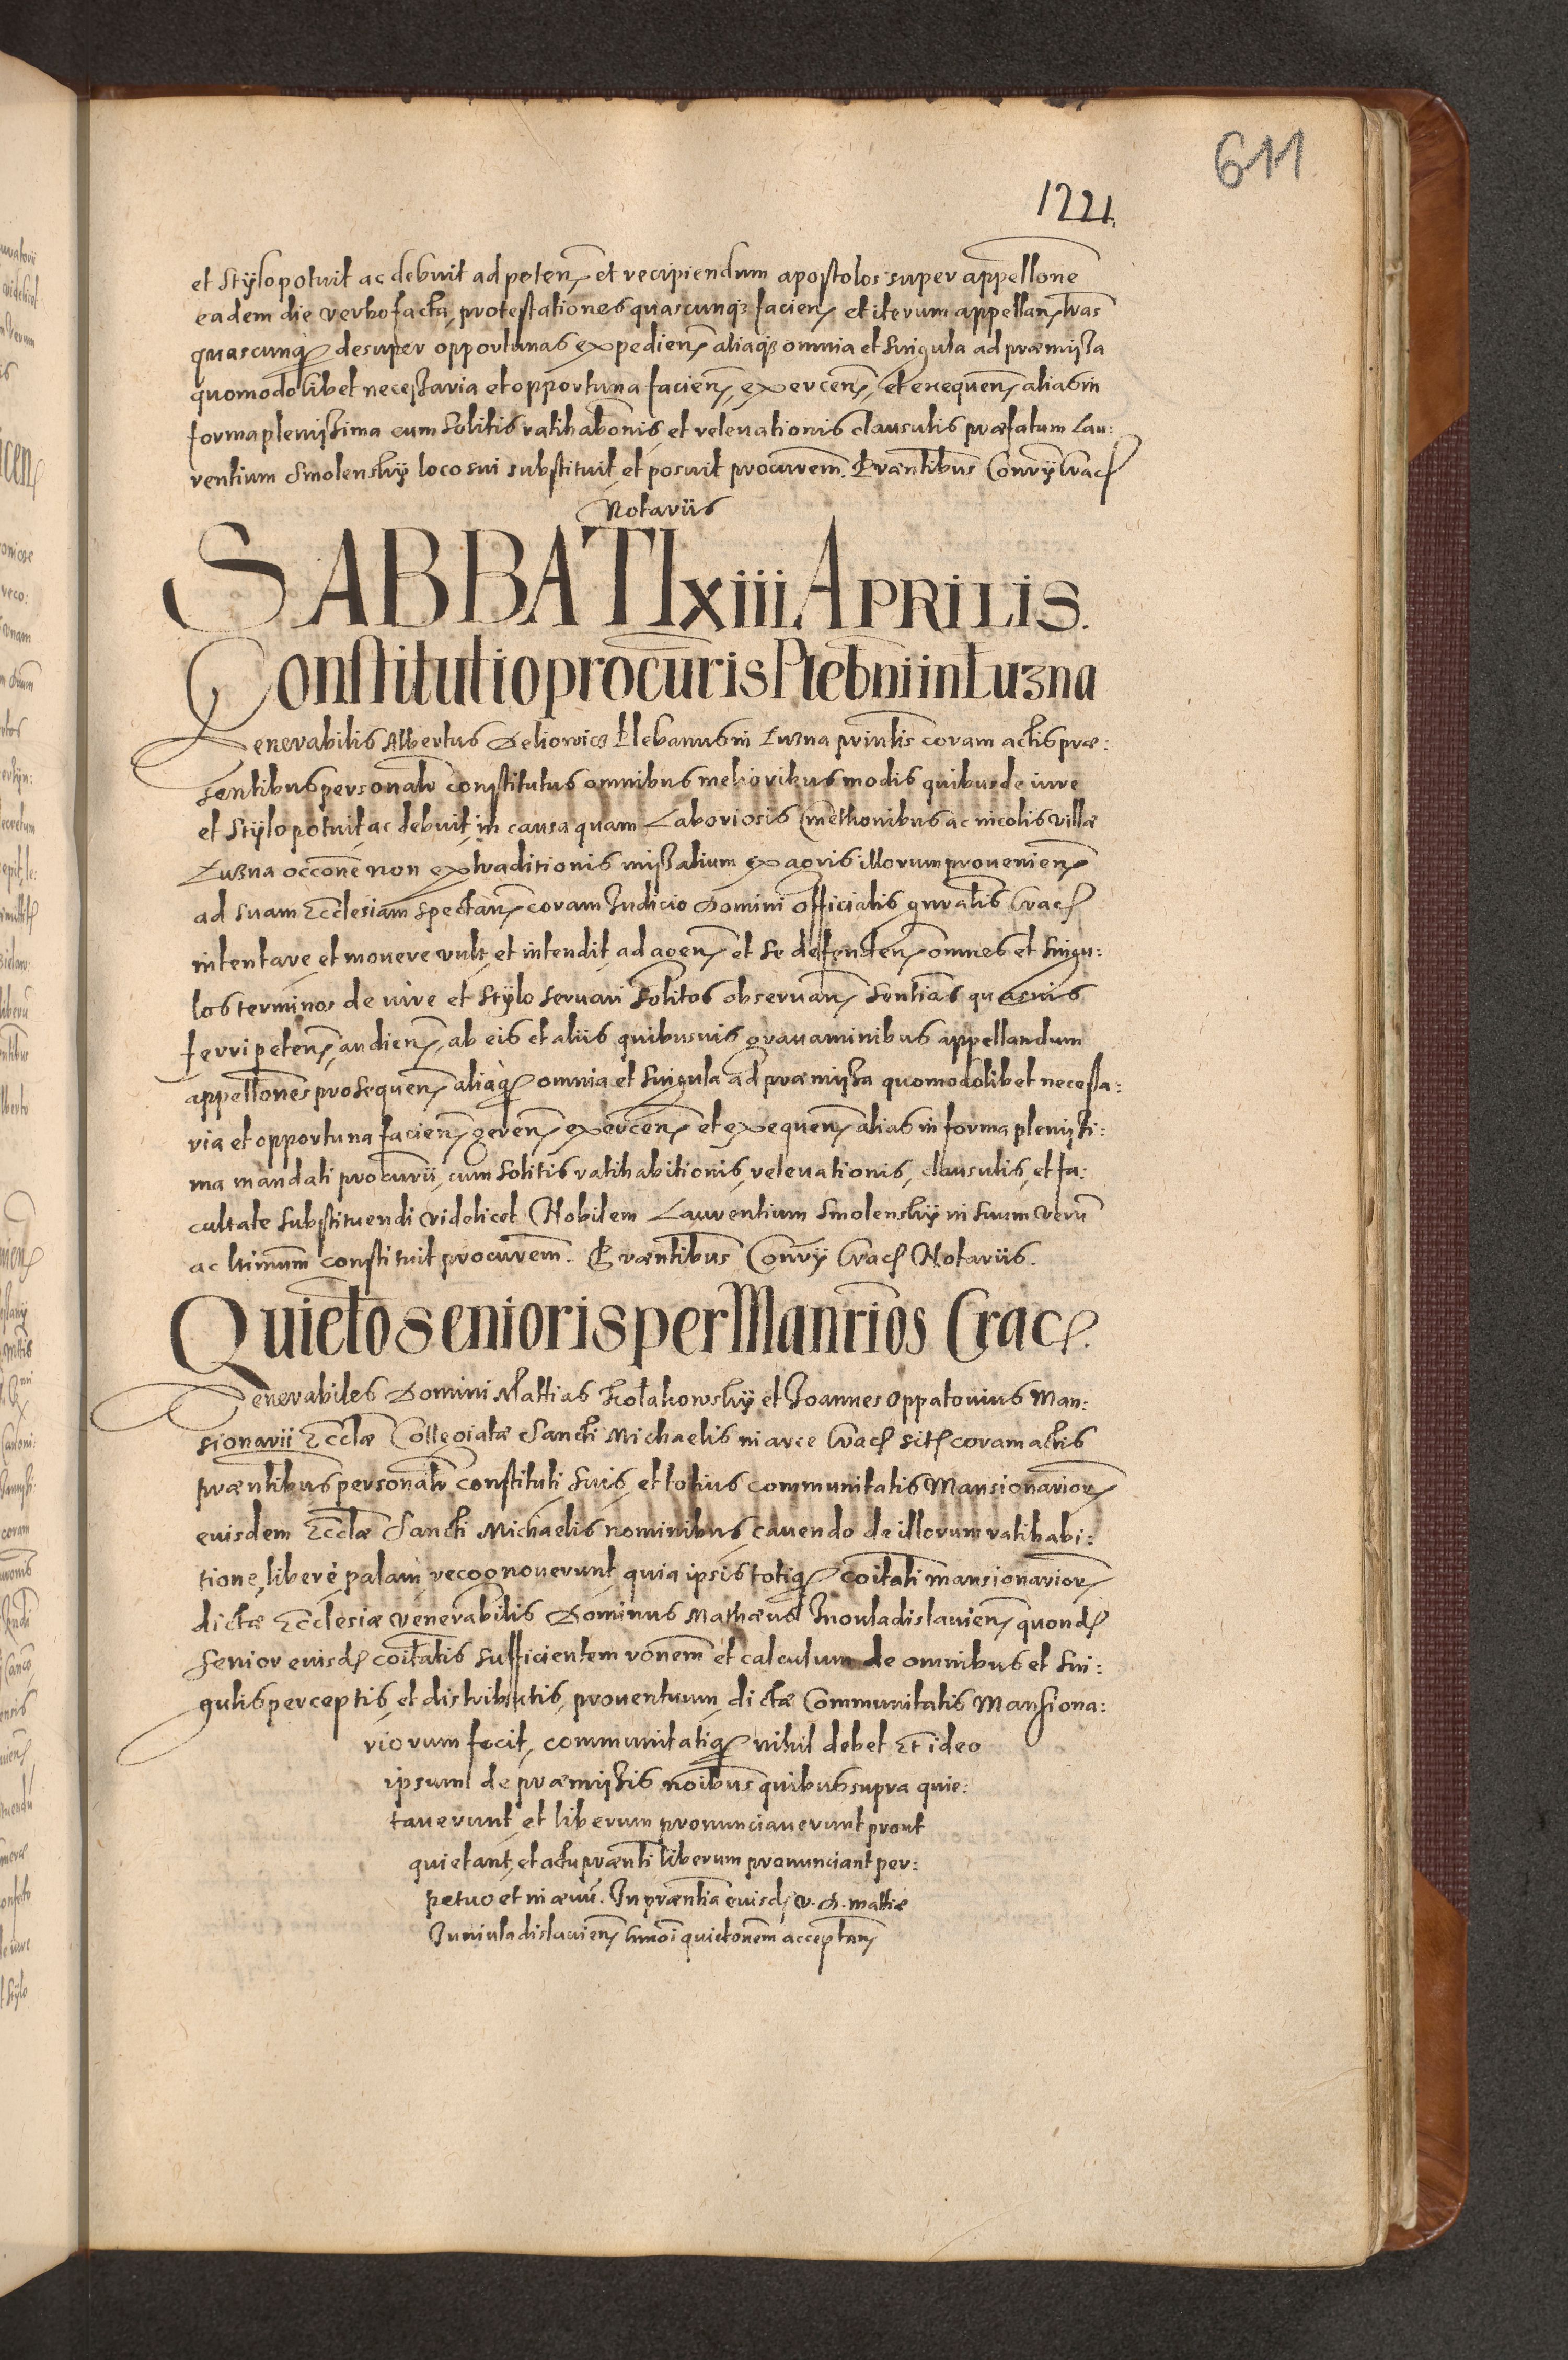 611
1221.
et stÿlo potuit ac debuit ad peten et recipiendum apostolos super appellone
eadem die verbo facta, protestationes quascunqz facien et iterum appellan lras
quascunqz desuper opportunas expedien aliaqz omnia et singula ad præmissa
quomodolibet necessaria et opportuna facien, exercen, et exequen alias in
forma plenissima cum solitis ratihabonis, et releuationis clausulis præfatum Lau:
rentium Smolenskÿ loco sui substituit, et posuit procurem. Præntibus Conrÿ Crac
Notariis
SABBATI xiii APRILIS.
Constitutio procuris Plebni in Łuzna
Venerabilis Albertus Deliowicz Plebanus in Łuzna prinlis coram actis præ:
sentibus personalr constitutus omnibus melioribus modis quibus de iure
et stÿlo potuit, ac debuit, in causa quam Laboriosis Cmethonibus ac incolis villæ
Łuzna occone non extraditionis missalium ex agris illorum prouenien
ad suam Ecclesiam spectan coram Iudicio Domini Officialis gnralis Crac
intentare et mouere vult, et intendit, ad agen et se defenden omnes et singu:
los terminos de iure et stÿlo seruari solitos obseruan sentias quasuis
ferri peten, audien, ab eis et aliis quibusuis grauaminibus appellandum
appellones prosequen aliaqz omnia et singula ad præmissa quomodolibet necessa:
ria et opportuna facien geren exercen et exequen alias in forma plenissi:
ma mandati procurii, cum solitis ratihabitionis, releuationis, clausulis, et fa:
cultate substituendi videlicet Nobilem Laurentium Smolenskÿ in suum veru
ac ltimum constituit procurem. Præntibus Conrÿ Crac Notariis.
Quietо senioris per Manrios Crac.
Venerabiles Domini Mattias Kołakowskÿ et Joannes Oppatouius Man:
sionarii Ecclæ Collegiatæ Sancti Michaelis in arce Crac sit coram actis
præntibus personalr constituti suis, et totius communitatis Mansionarior
euisdem Ecclæ Sancti Michaelis nominibus, cauendo de illorum ratihabi:
tione, liberè palam, recognouerunt, quia ipsis totiqz coitati mansionarior
dictæ Ecclesiæ venerabilis Dominus Mathæus Inouladislauien quond
senior euisd coitatis sufficientem ronem et calculum de omnibus et sin:
gulis perceptis, et distributis, prouentuum dictæ Communitatis Mansiona:
riorum fecit, communitatiqz nihil debet Et ideo
ipsum de præmissis noibus quibus supra quie:
tauerunt, et liberum pronunciauerunt prout
quietant, et actu prænti liberum pronunciant per:
petuo et in æuu. In præntia euisd v. D. Mattiæ
Juniuladislauien hmoi quietonem acceptan